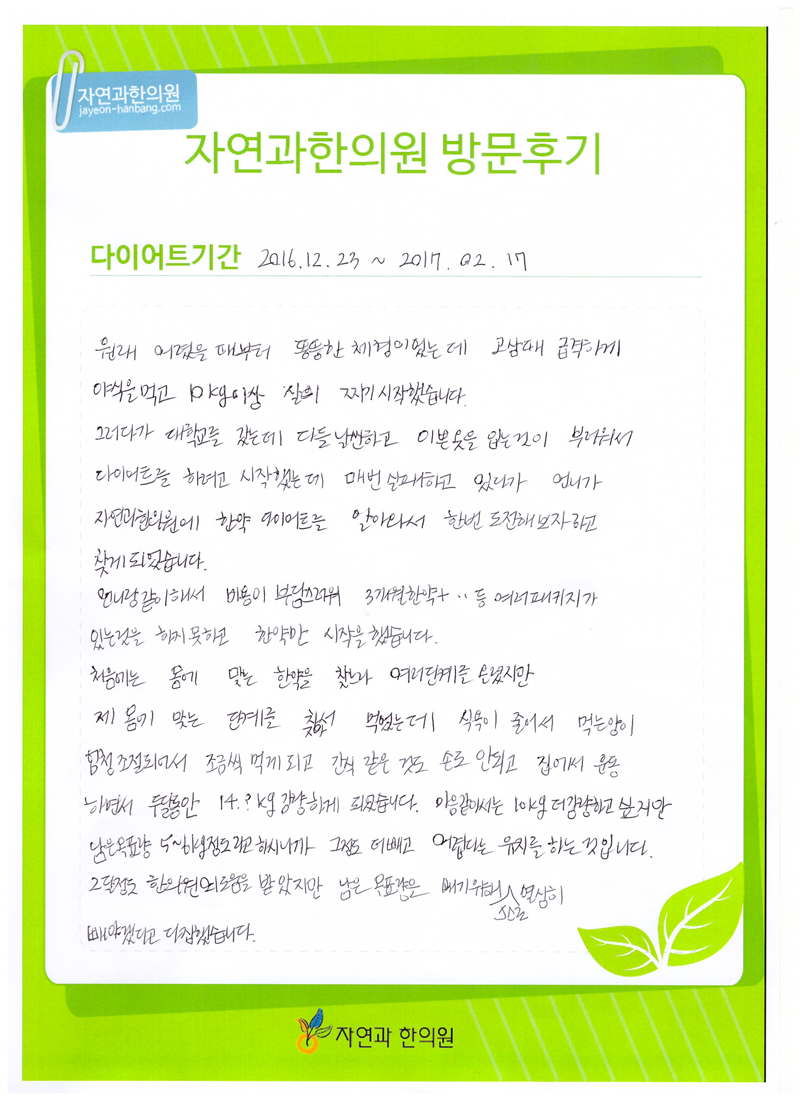 자연과한의원
jayeon-hanbang.com
자연과한의원 방문후기
다이어트기간 2016.12.23 ~ 2017.02.17
원래 어렸을 때부터 뚱뚱한 체형이었는데 고삼때 급격하게
야식을먹고 10kg이상 살이 찌기시작했습니다.
그러다가 대학교를 갔는데 다들날씬하고 이쁜옷을 입는것이 부러워서
다이어트를 하려고 시작했는데 매번실패하고 있다가 언니가
자연과한의원에 한약 다이어트를 알아와서 한번 도전해보자하고
찾게되었습니다.
언니랑같이해서 비용이 부담스러워 3개월한약+ ··등 여러패키지가
있는것을 하지못하고 한약만 시작을했습니다.
처음에는 몸에 맞는 한약을 찾느라 여러단계를
제 몸에 맞는 단계를 찾아서 먹었는데 식욕이 줄어서 먹는양이
엄청조절되어서 조금씩먹게되고 간식 같은 것도 손도 안되고 집에서 운동
하면서 두달동안 14.?kg감량하게 되었습니다. 마음같아서는 10kg더감량하고싶지만
남은목표량 5~6kg정도라고하시니까 그정도 더빼고 어렵다는 유지를 하는것입니다.
2달정도 한의원의도움을 받았지만 남은 목표량을 빼기위해 열심히
빼야겠다고 다짐했습니다.
자연과 한의원